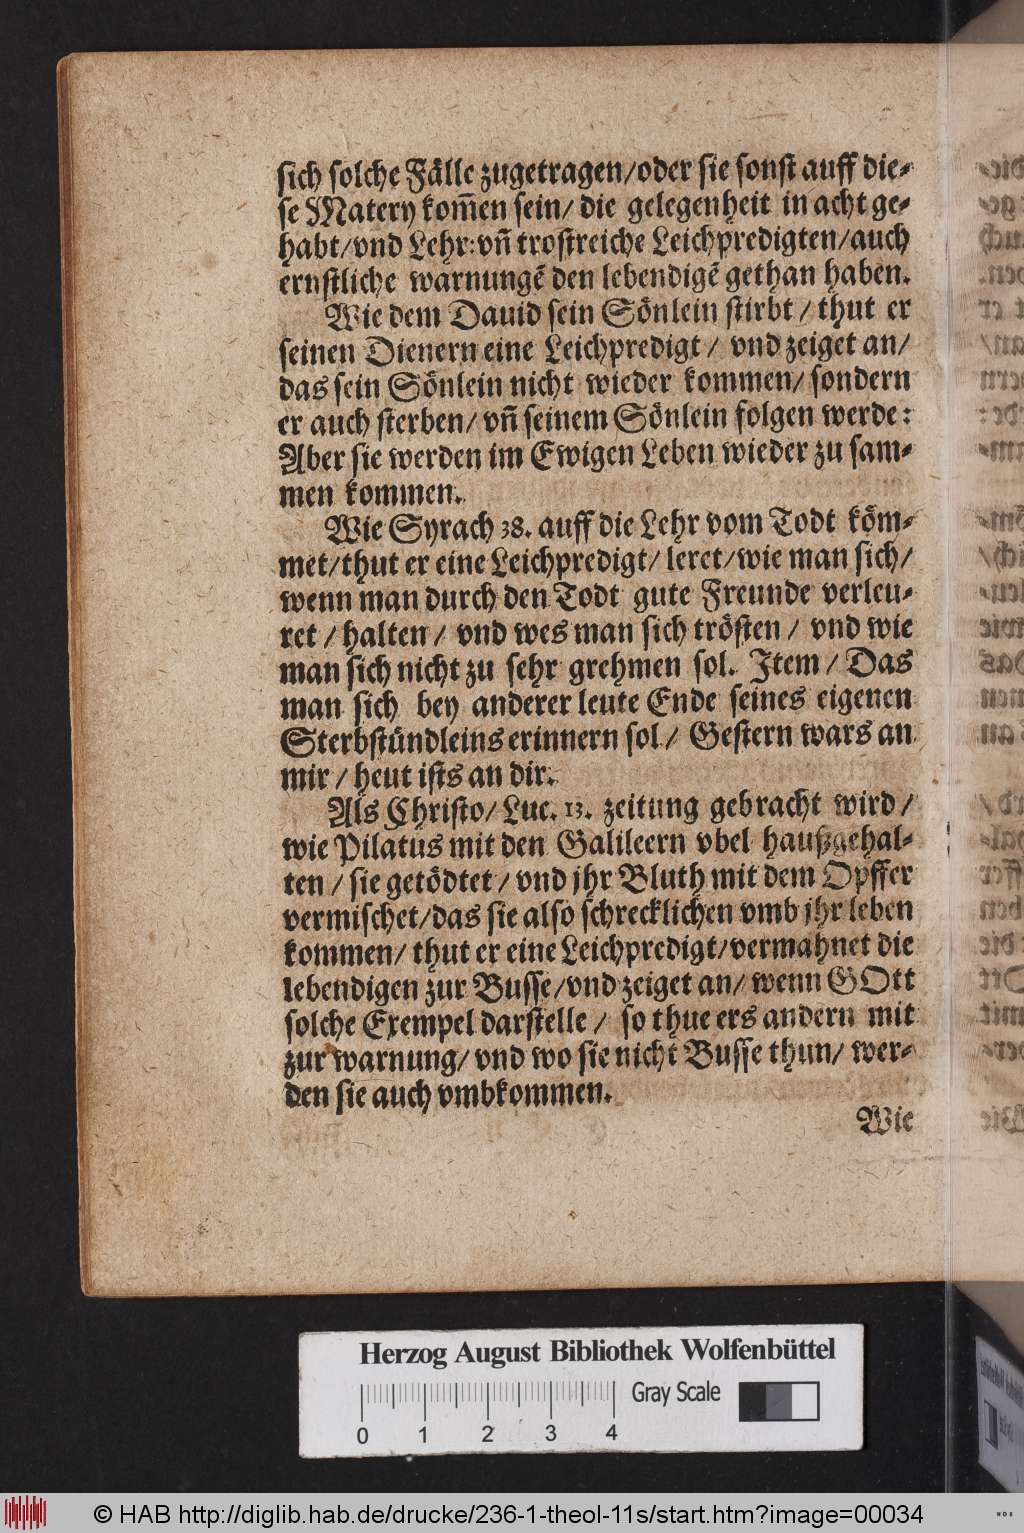 sich solche Fälle zugetragen/oder sie sonst auff die-
se Matery kom̃en sein/ die gelegenheit in acht ge-
habt/vnd Lehr:vñ trostreiche Leichpredigten/auch
ernstliche warnungẽ den lebendigẽ gethan haben.
Wie dem Dauid sein Sönlein stirbt / thut er
seinen Dienern eine Leichpredigt / vnd zeiget an/
das sein Sönlein nicht wieder kommen/ sondern
er auch sterben/ vñ seinem Sönlein folgen werde:
Aber sie werden im Ewigen Leben wieder zu sam-
men kommen.
Wie Syrach 38. auff die Lehr vom Todt köm-
met/thut er eine Leichpredigt/ leret/wie man sich/
wenn man durch den Todt gute Freunde verleu-
ret / halten / vnd wes man sich trösten / vnd wie
man sich nicht zu sehr grehmen sol. Item / Das
man sich bey anderer leute Ende seines eigenen
Sterbstündleins erinnern sol / Gestern wars an
mir / heut ists an dir.
Als Christo/ Luc. 13. zeitung gebracht wird /
wie Pilatus mit den Galileern vbel haußgehal-
ten / sie getödtet / vnd jhr Bluth mit dem Opffer
vermischet/das sie also schrecklichen vmb jhr leben
kommen/ thut er eine Leichpredigt/vermahnet die
lebendigen zur Busse/vnd zeiget an/ wenn GOtt
solche Exempel darstelle / so thue ers andern mit
zur warnung/ vnd wo sie nicht Busse thun/ wer-
den sie auch vmbkommen.
Wie
Herzog August Bibliothek Wolfenbüttel
Gray Scale
0 1 2 3 4
© HAB http://diglib.hab.de/drucke/236-1-theol-11s/start.htm?image=00034